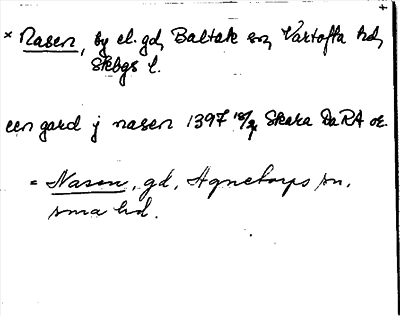 * Nasen, by el. gd, Baltak sn, Vartofta hd,
Skbgs l.
een gard j nasen 1397 18/3 Skara DaRA or.
= Nasen, gd, Agnetorps sn,
sma hd.